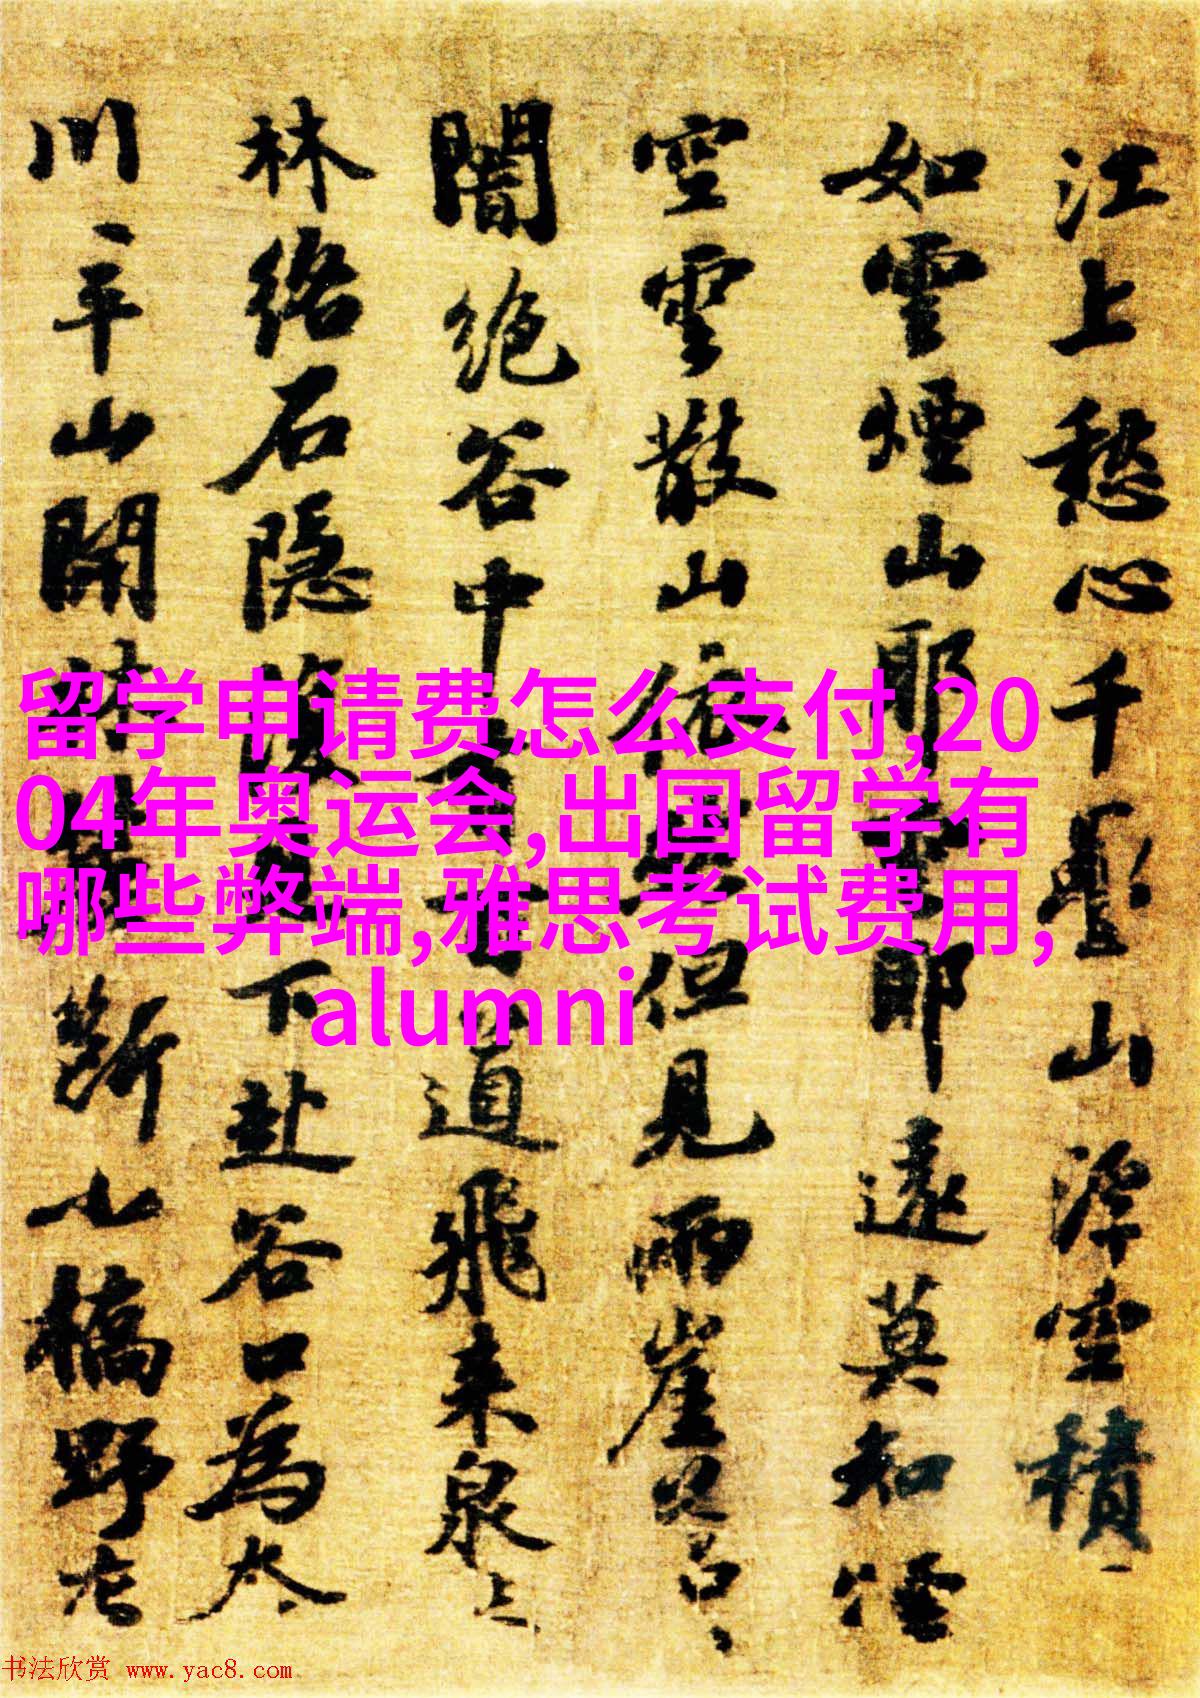 江上愁心千疊山浮空積
如雲煙山耶耶遠莫知煙
空雲散山依但見兩崖
闇絕谷中道飛來泉
林絡石隱下赴谷口為
川平山開斷小橋野
留学申请费怎么支付,20
04年奥运会,出国留学有
哪些弊端,雅思考试费用,
alumni
书法欣赏 www.yac8.com